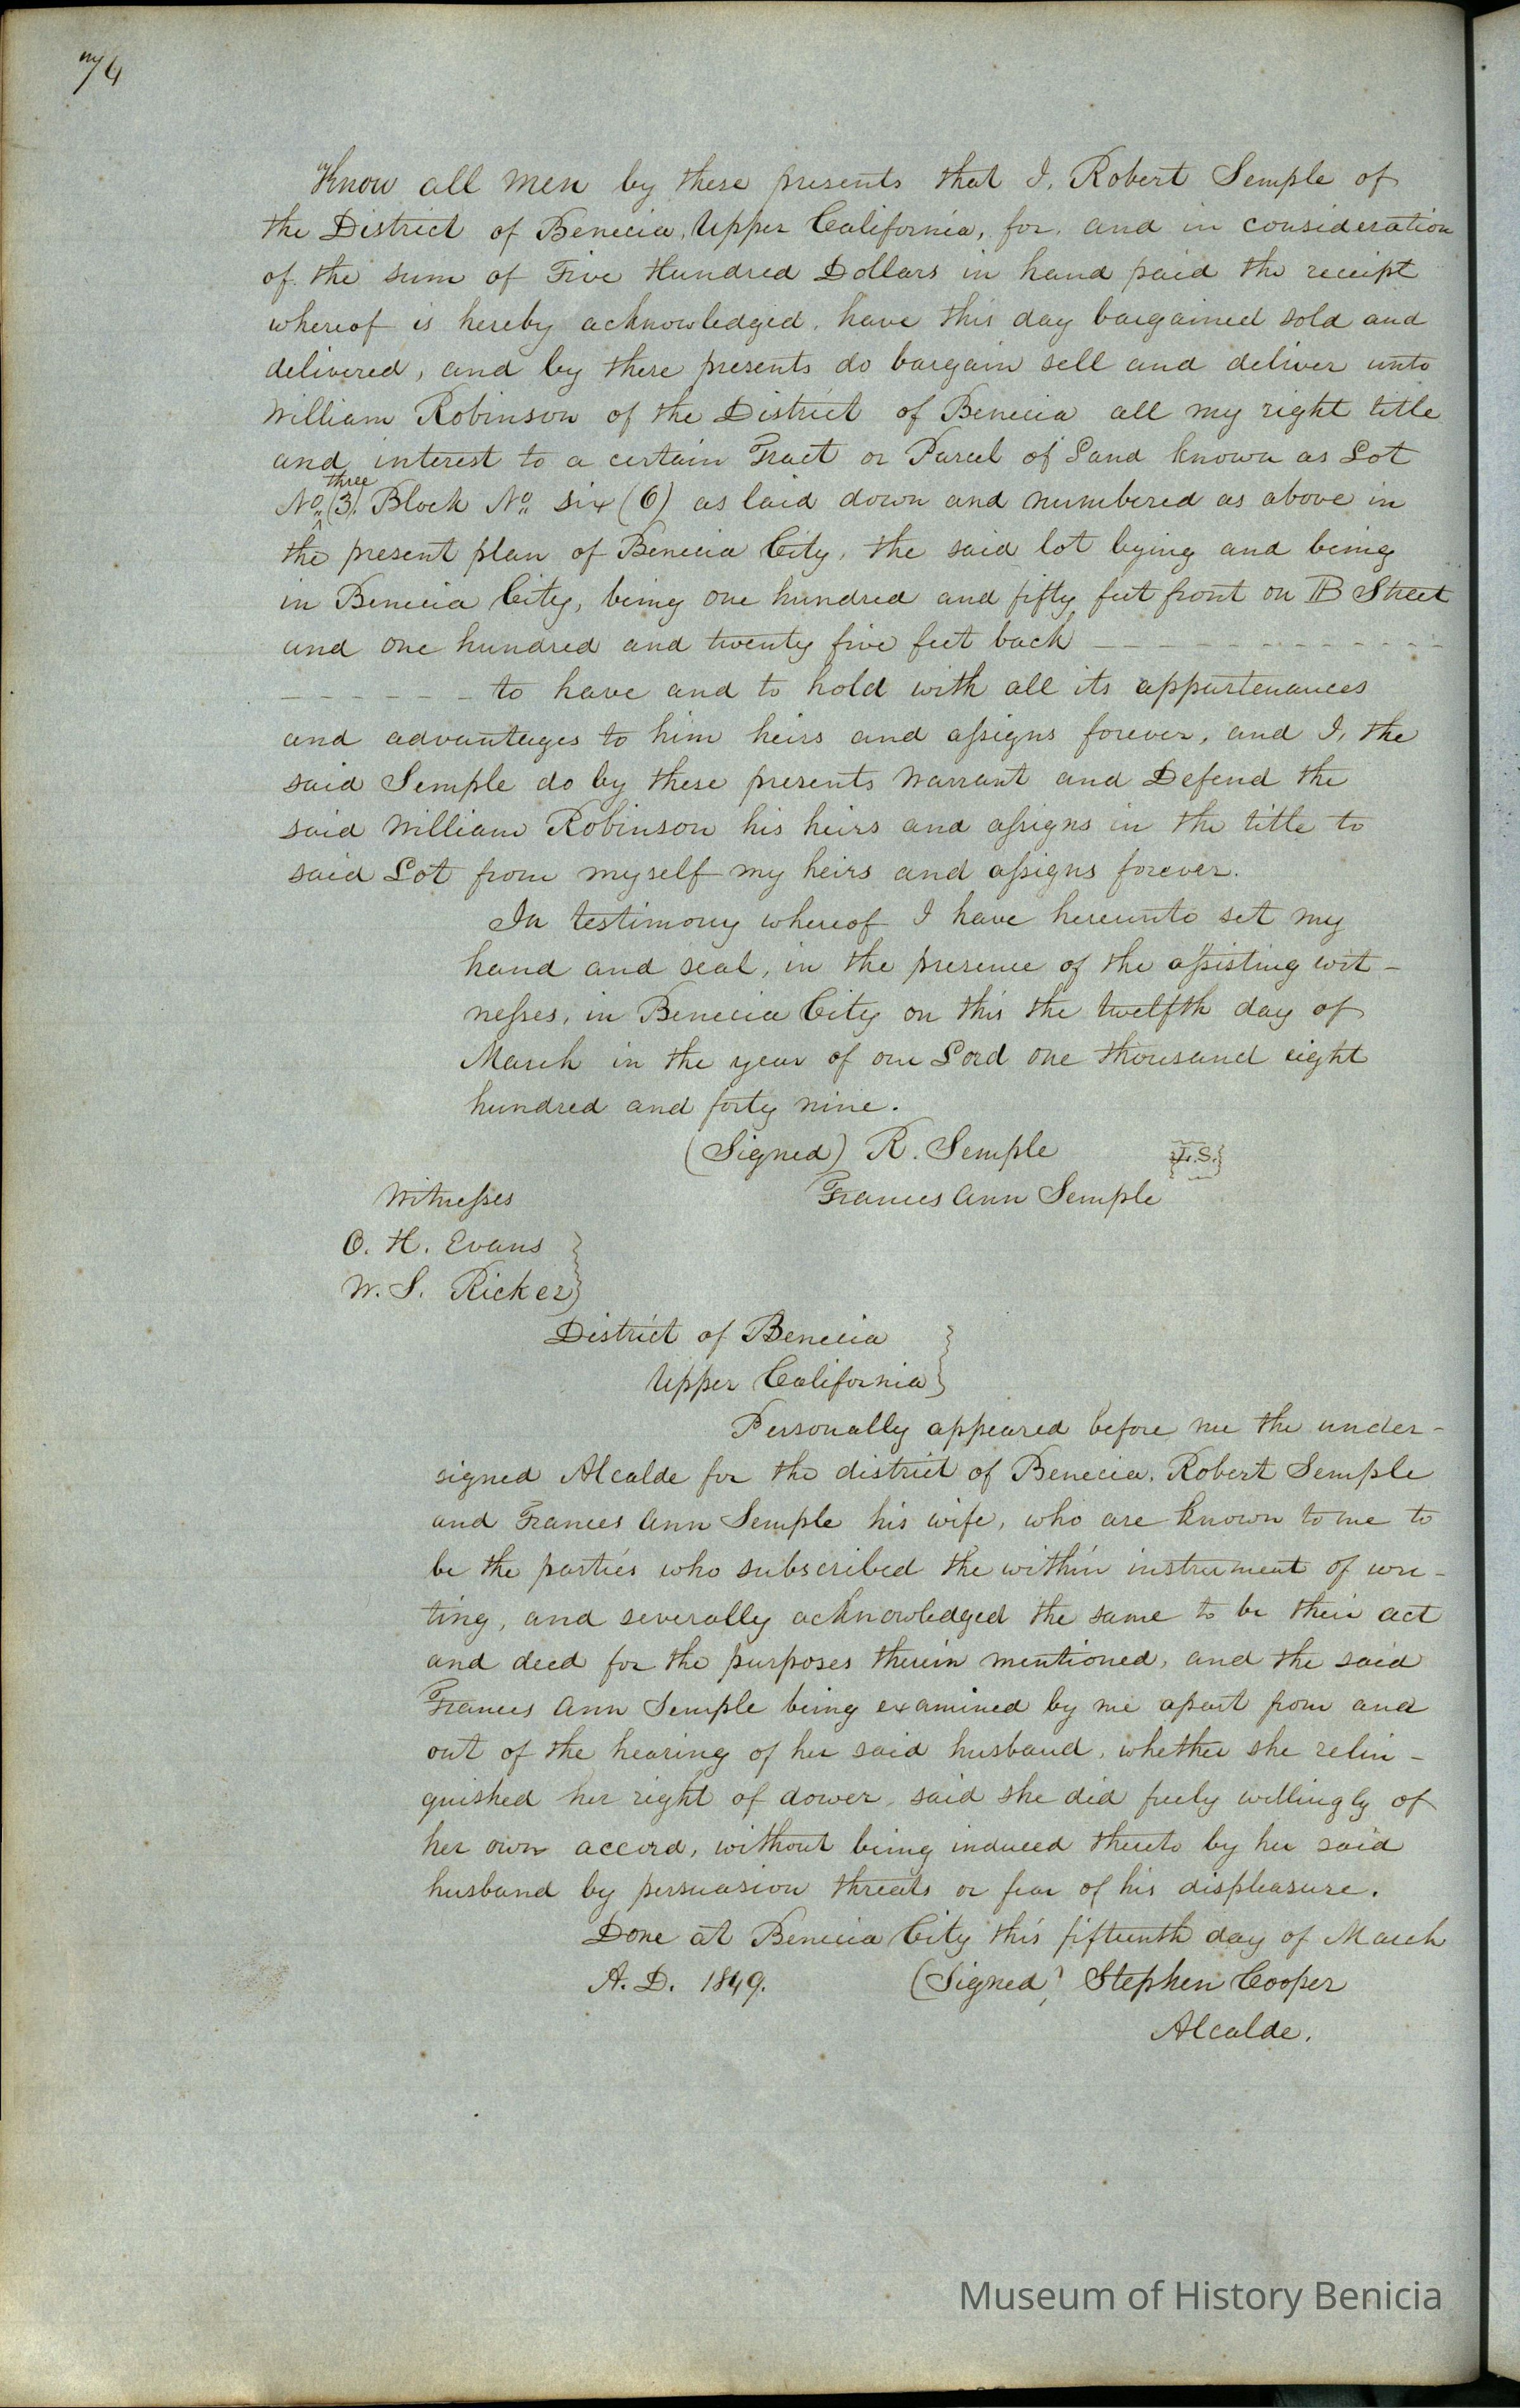 74
Know all men by these presents that I, Robert Semple of
the District of Benicia, Upper California, for, and in consideration
of the sum of Five Hundred Dollars in hand paid the receipt
whereof is hereby acknowledged, have this day bargained sold and
delivered, and by these presents do bargain sell and deliver unto
William Robinson of the District of Benicia all my right title
and interest to a certain Tract or Parcel of Land known as Lot
No. three (3) Block No. six (6) as laid down and numbered as above in
the present plan of Benicia City, the said lot lying and being
in Benicia City, being one hundred and fifty feet front on B Street
and one hundred and twenty five feet back - - - - - - - - - - - -
- - - - - - - to have and to hold with all its appurtenances
and advantages to him heirs and assigns forever, and I, the
said Semple do by these presents Warrant and Defend the
said William Robinson his heirs and assigns in the title to
said Lot from myself my heirs and assigns forever.
In testimony whereof I have hereunto set my
hand and seal, in the presence of the assisting wit-
nesses, in Benicia City on this the twelfth day of
March in the year of our Lord one thousand eight
hundred and forty nine.
(Signed) R. Semple {L.S.}
Witnesses Frances Ann Semple
O. H. Evans }
W. S. Ricker }
District of Benicia }
Upper California }
Personally appeared before me the under-
signed Alcalde for the district of Benicia, Robert Semple
and Frances Ann Semple his wife, who are known to me to
be the parties who subscribed the within instrument of wri-
ting, and severally acknowledged the same to be their act
and deed for the purposes therein mentioned, and the said
Frances Ann Semple being examined by me apart from and
out of the hearing of her said husband, whether she relin-
quished her right of dower, said she did freely willingly of
her own accord, without being induced thereto by her said
husband by persuasion threats or fear of his displeasure.
Done at Benicia City this fifteenth day of March
A. D. 1849. (Signed) Stephen Cooper
Alcalde.
Museum of History Benicia